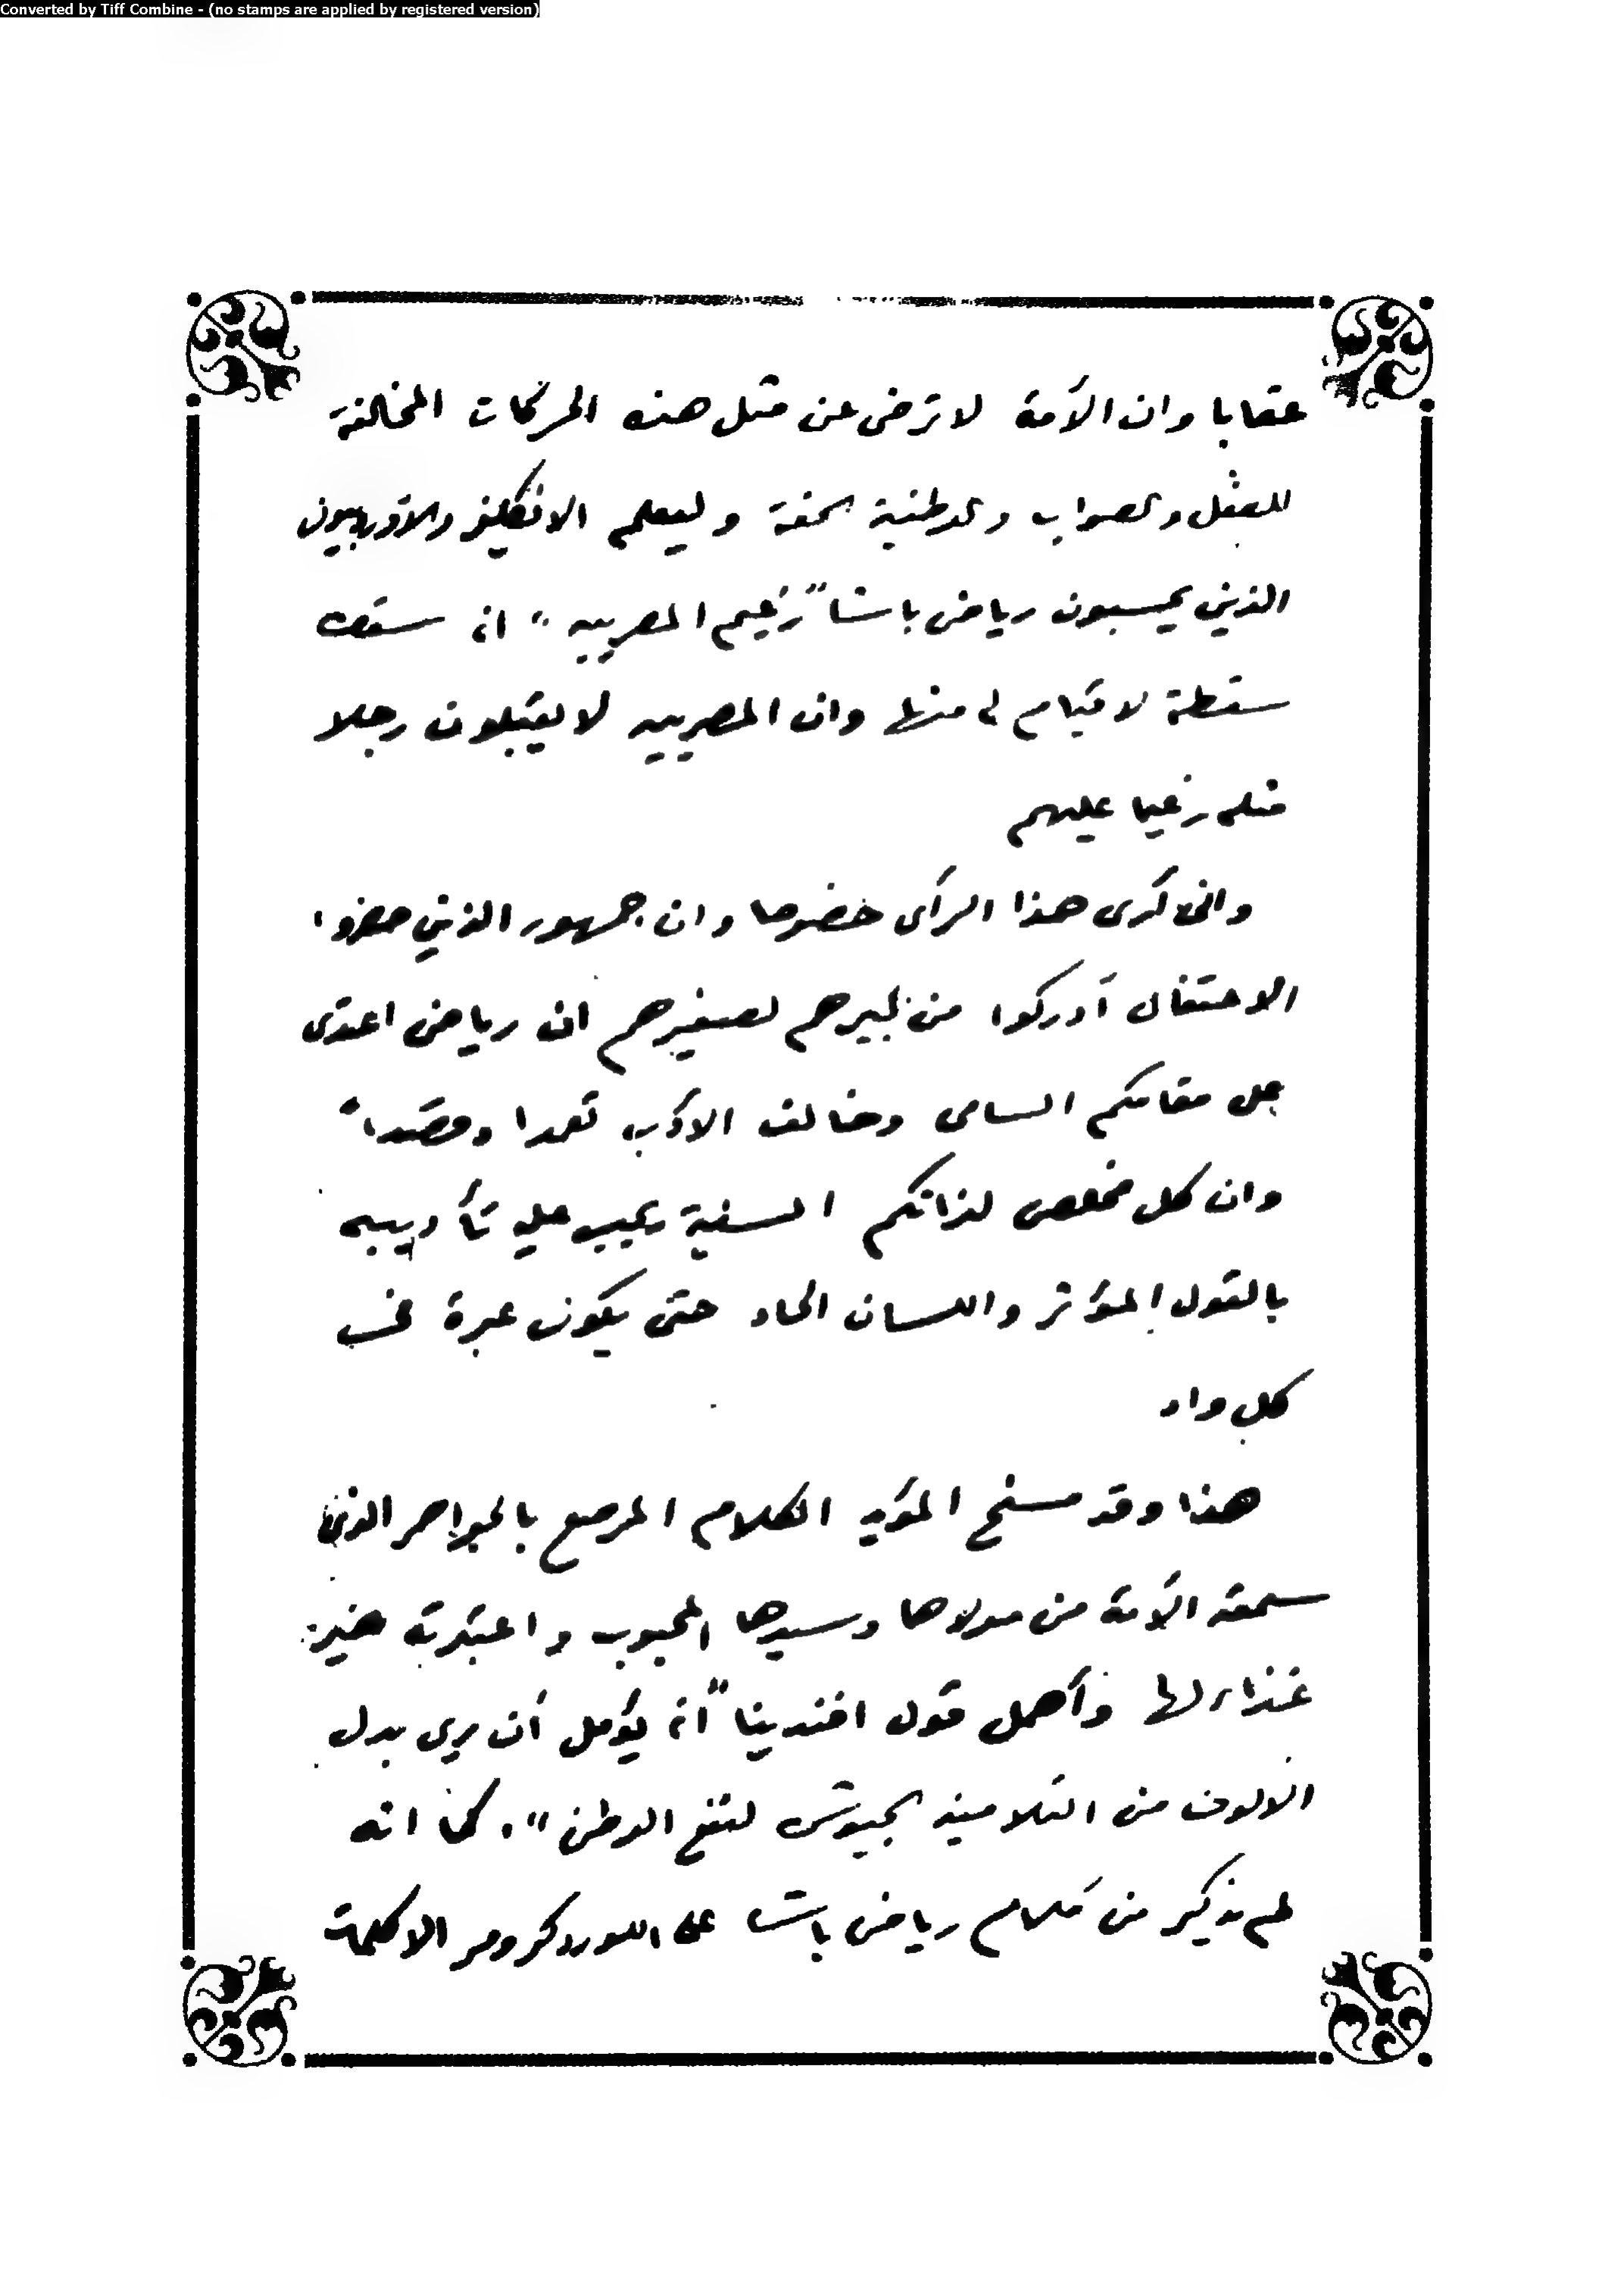 Converted by Tiff Combine - (no stamps are applied by registered version)
عقابا وان الأمة لا ترضى عن مثل هذه الحركات المخالفة
للعقل والصواب والوطنية الحقة وليعلم الانكليز والاوربيون
الذين يحسبون رياض باشا "زعيم المصريين" انه سقط
سقطة لا قيام له منها وان المصريين لا يقبلون رجلا
مثله زعيما عليهم
وانى أرى هذا الرأى خصوصا وان جمهور الذين حضروا
الاحتفال أدركوا من كبيرهم لصغيرهم ان رياض اعتدى
على مقامكم السامى وخالف الأدب تعمدا وقصداً
وان كل مخلص لذاتكم السنية يجب عليه تأديبه
بالقول المؤثر واللسان الحاد حتى يكون عبرة فى
كل واد
هذا وقد مسخ المؤيد الكلام المرصع بالجواهر الذى
سمعته الأمة من مولاها وسيدها المحبوب واعتبرته خير
غذاء لها وأهمل قول افندينا "أنه يؤمل أن يرى بدل
الالوف من التلاميذ الجيوش لنفع الوطن". كما انه
لم يذكر من كلام رياض باشا على اللورد كرومر الا كلمة